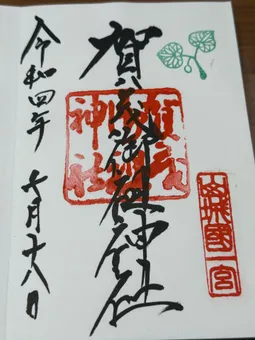 山城國一宮
賀茂御祖神社
賀茂
神社
令和四年 七月十八日